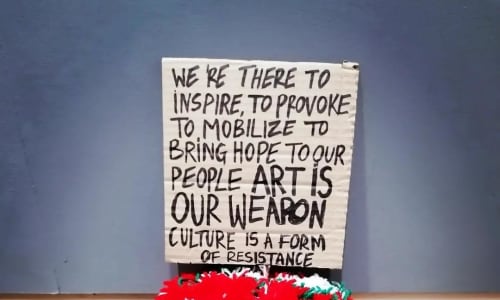 WE'RE THERE TO
INSPIRE, TO PROVOKE
TO MOBILIZE TO
BRING HOPE TO OUR
PEOPLE ART IS
OUR WEAPON
CULTURE IS A FORM
OF RESISTANCE